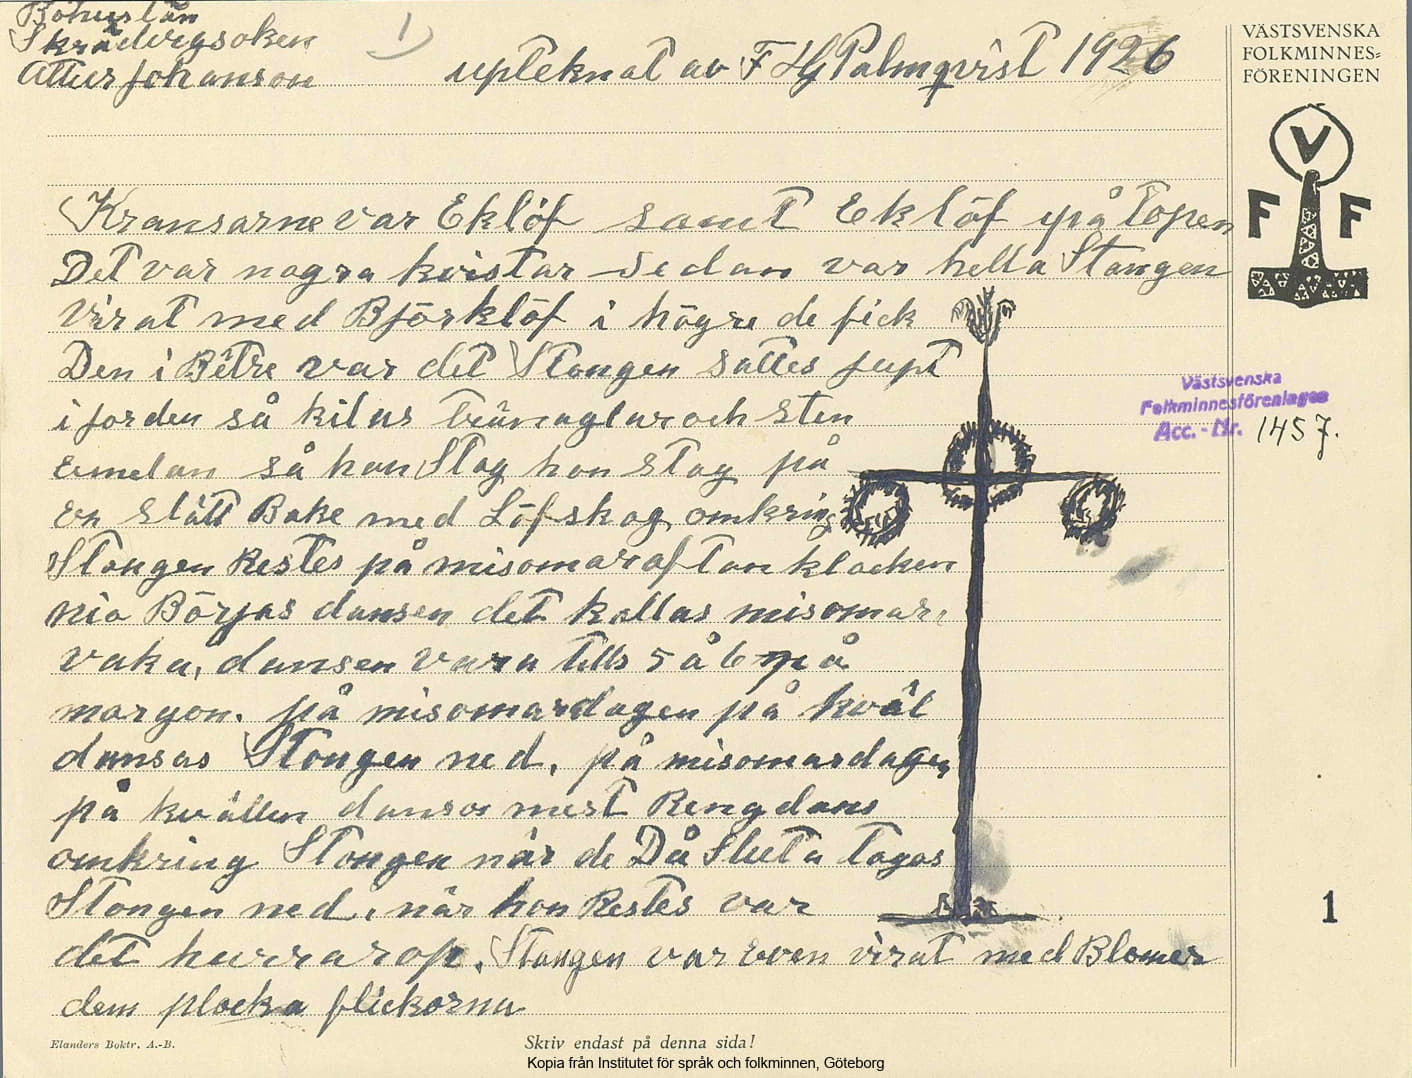 Bohuslän
Skrädvigsoken
Attur Johanson
1
upteknat av F Hj Palmqvist 1926
VÄSTSVENSKA
FOLKMINNES=
FÖRENINGEN
V
F F
Kransarne var Eklöf samt Eklöf på topen
Det var nogra kvistar sedan var hella Stongen
Virat med Björklöf i högre de fick
Den i Bètre var det Stongen sattes jupt
i jorden så kilas tränaglar och sten
emelan så hon Stog hon stog på
en slätt Bake med Löfskog omkring
Stongen Restes på misomaraftan klocken
nio Börjas dansen det kallas misomars
vaka, dansen vara tills 5 å 6 på
morgon. på misomardagen på kväl
dansas Stongen ned, på misomardagen
på kvällen dansas mest Rengdans
omkring Stongen när de Då Sluta tagas
Stongen ned, när hon Restes var
det hurrarop. Stongen var even virat med Blomer
dem plocka flickorna
Västsvenska
Folkminnesföreningen
Acc. - Nr. 1457.
1
Elanders Boktr. A.-B.
Skriv endast på denna sida!
Kopia från Institutet för språk och folkminnen, Göteborg